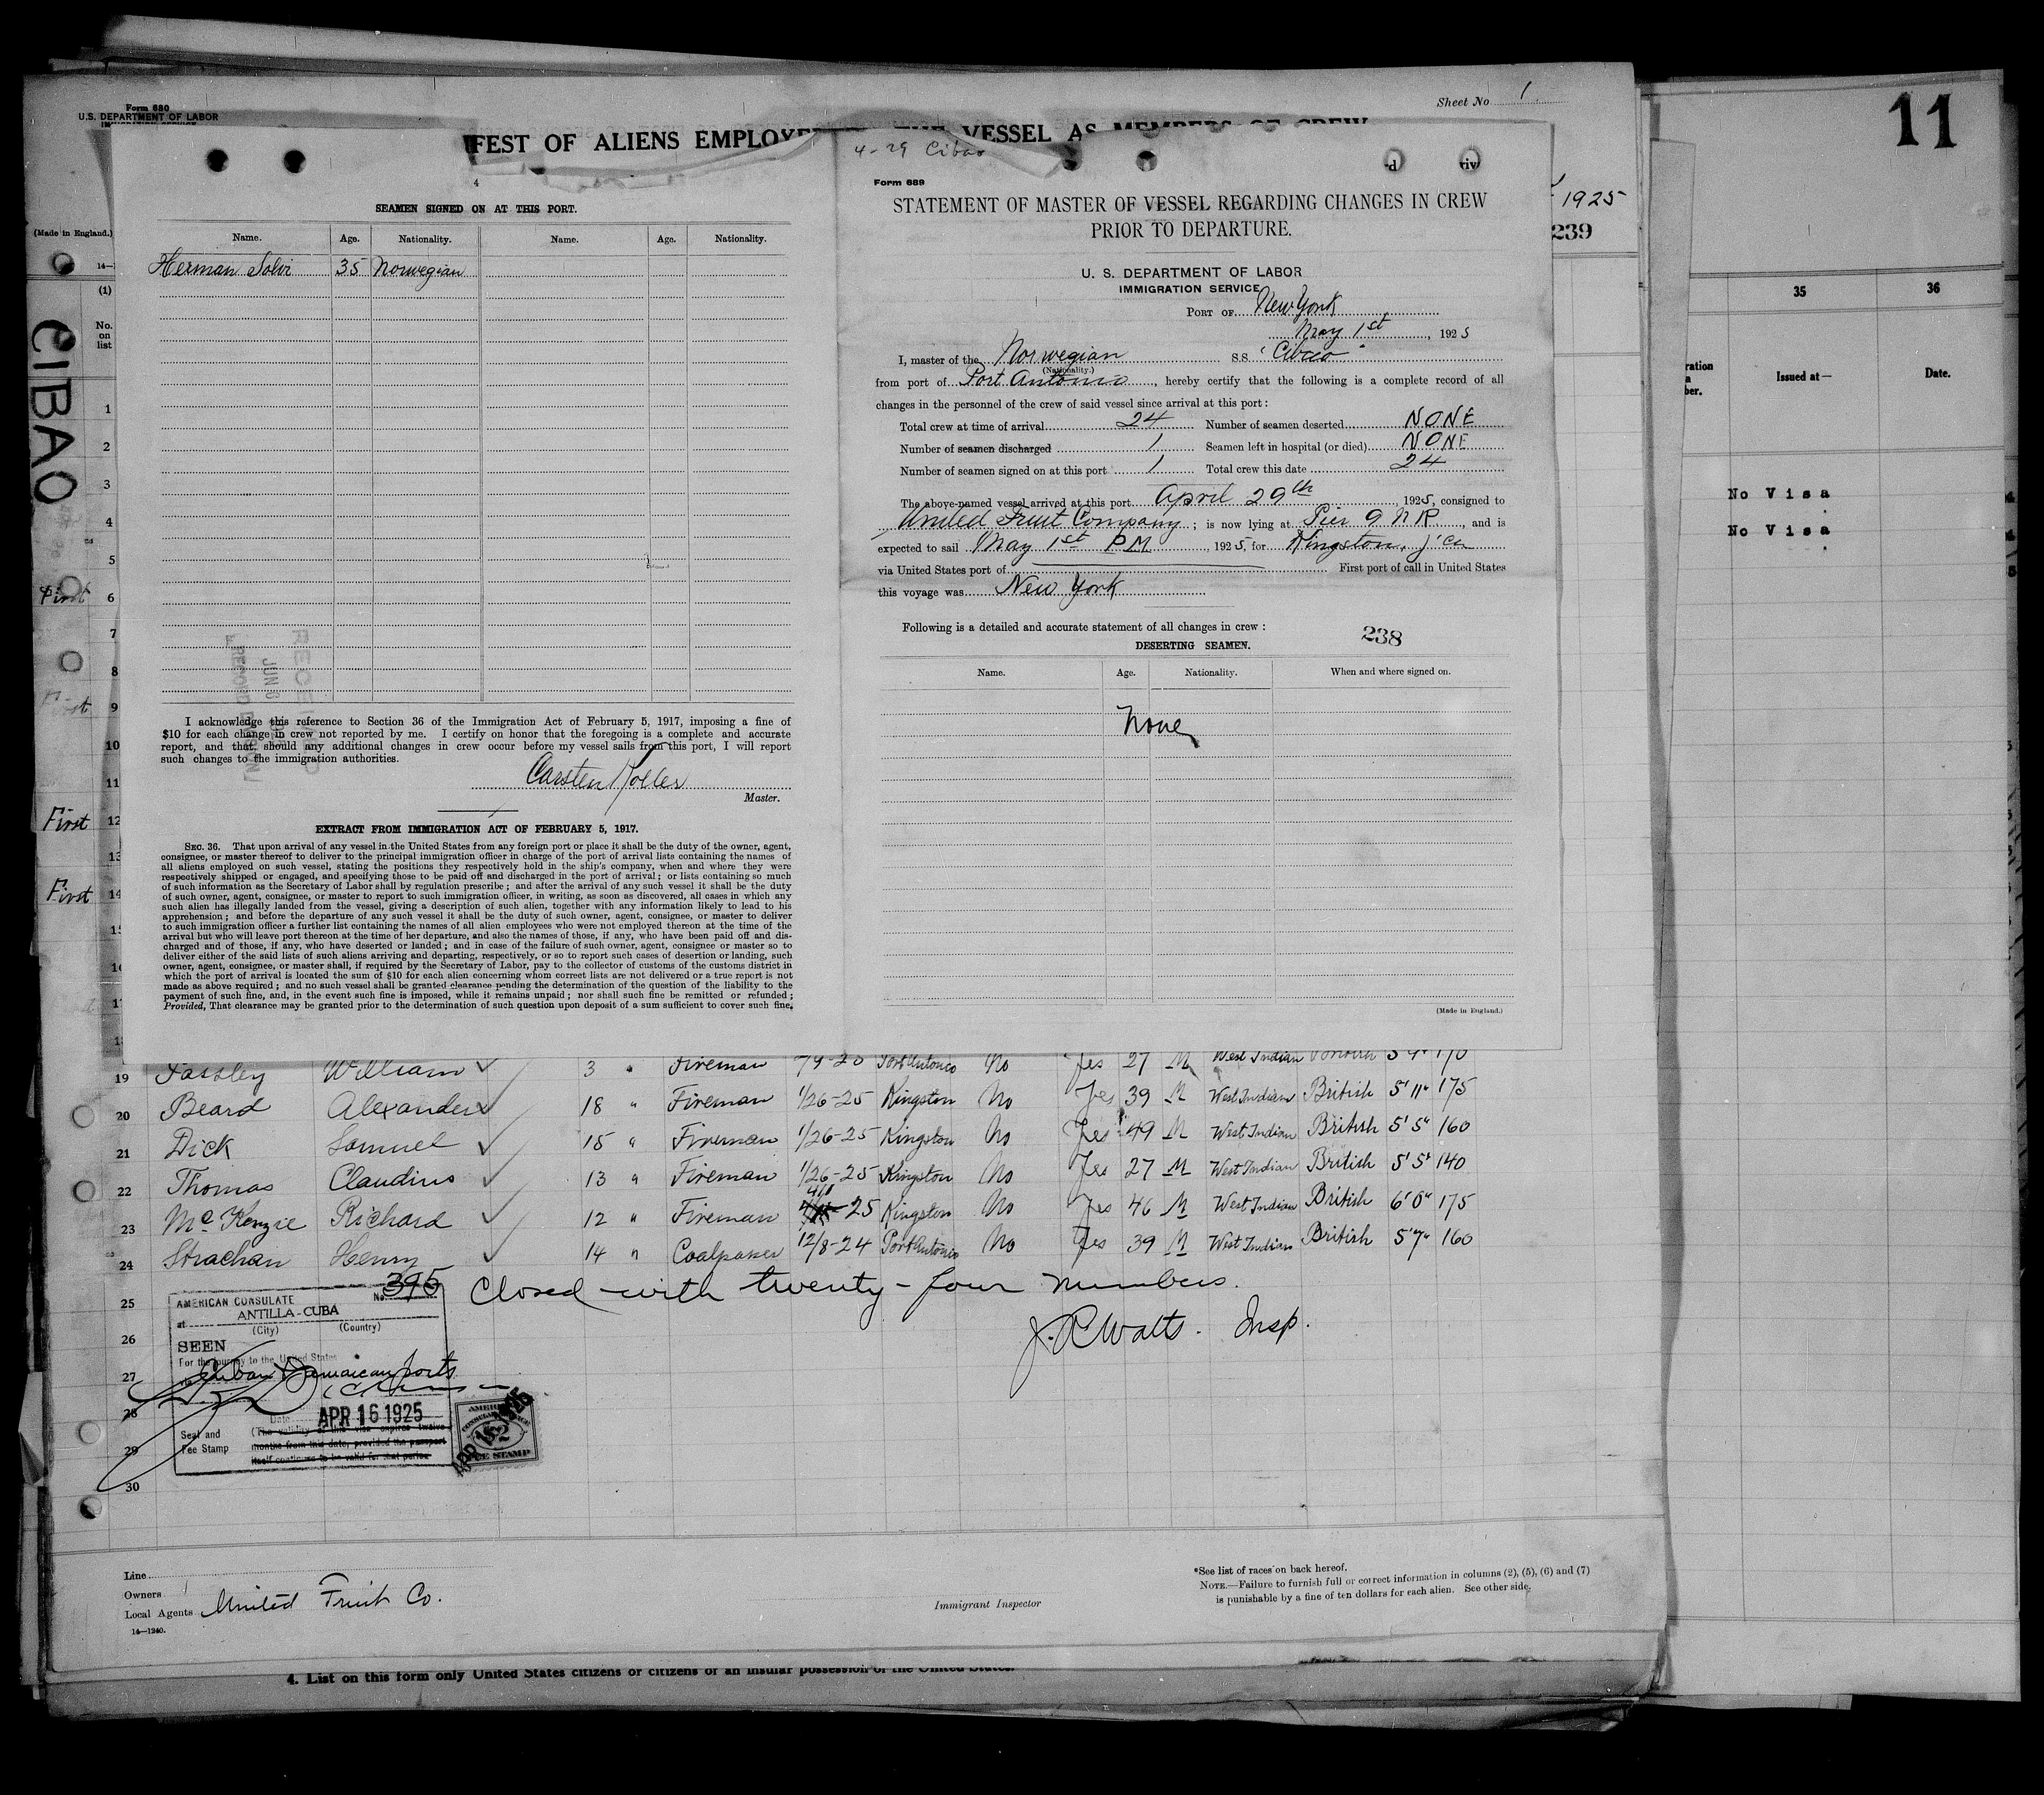 Form 680
U.S. DEPARTMENT OF LABOR
Sheet No 1
11
FEST OF ALIENS EMPLOYE VESSEL AS MEMBERS OF CREW
1925
239
(Made in England.)
14—
(1)
No.
on
list
CIBAO
4
SEAMEN SIGNED ON AT THIS PORT.
Name. Age. Nationality. Name. Age. Nationality.
Herman Solvi 35 Norwegian
RECEIVED
JUN 6
RECORD DIVISION
I acknowledge this reference to Section 36 of the Immigration Act of February 5, 1917, imposing a fine of
$10 for each change in crew not reported by me. I certify on honor that the foregoing is a complete and accurate
report, and that should any additional changes in crew occur before my vessel sails from this port, I will report
such changes to the immigration authorities.
Carsten Moller
Master.
EXTRACT FROM IMMIGRATION ACT OF FEBRUARY 5, 1917.
SEC. 36. That upon arrival of any vessel in the United States from any foreign port or place it shall be the duty of the owner, agent,
consignee, or master thereof to deliver to the principal immigration officer in charge of the port of arrival lists containing the names of
all aliens employed on such vessel, stating the positions they respectively hold in the ship's company, when and where they were
respectively shipped or engaged, and specifying those to be paid off and discharged in the port of arrival; or lists containing so much
of such information as the Secretary of Labor shall by regulation prescribe; and after the arrival of any such vessel it shall be the duty
of such owner, agent, consignee, or master to report to such immigration officer, in writing, as soon as discovered, all cases in which any
such alien has illegally landed from the vessel, giving a description of such alien, together with any information likely to lead to his
apprehension; and before the departure of any such vessel it shall be the duty of such owner, agent, consignee, or master to deliver
to such immigration officer a further list containing the names of all alien employees who were not employed thereon at the time of the
arrival but who will leave port thereon at the time of her departure, and also the names of those, if any, who have been paid off and dis-
charged and of those, if any, who have deserted or landed; and in case of the failure of such owner, agent, consignee or master so to
deliver either of the said lists of such aliens arriving and departing, respectively, or so to report such cases of desertion or landing, such
owner, agent, consignee, or master shall, if required by the Secretary of Labor, pay to the collector of customs of the customs district in
which the port of arrival is located the sum of $10 for each alien concerning whom correct lists are not delivered or a true report is not
made as above required; and no such vessel shall be granted clearance pending the determination of the question of the liability to the
payment of such fine, and, in the event such fine is imposed, while it remains unpaid; nor shall such fine be remitted or refunded;
Provided, That clearance may be granted prior to the determination of such question upon deposit of a sum sufficient to cover such fine.
4-29 Cibao
Form 689
STATEMENT OF MASTER OF VESSEL REGARDING CHANGES IN CREW
PRIOR TO DEPARTURE.
U. S. DEPARTMENT OF LABOR
IMMIGRATION SERVICE
PORT OF New York
May 1st, 1925
I, master of the Norwegian S.S. "Cibao"
(Nationality.)
from port of Port Antonio, hereby certify that the following is a complete record of all
changes in the personnel of the crew of said vessel since arrival at this port:
Total crew at time of arrival 24 Number of seamen deserted NONE
Number of seamen discharged 1 Seamen left in hospital (or died) NONE
Number of seamen signed on at this port 1 Total crew this date 24
The above-named vessel arrived at this port April 29th, 1925, consigned to
United Fruit Company; is now lying at Pier 9 N R, and is
expected to sail May 1st PM, 1925, for Kingston, J'ca
via United States port of First port of call in United States
this voyage was New York
Following is a detailed and accurate statement of all changes in crew:
238
DESERTING SEAMEN.
Name. Age. Nationality. When and where signed on.
None
(Made in England.)
35 36
Issued at— Date.
No Visa
No Visa
1
2
3
4
5
First 6
7
8
First 9
10
11
First 12
13
First 14
19 Passley William 3 " Fireman Port Antonio No Yes 27 M West Indian British 5'9" 170
20 Beard Alexander 18 " Fireman 1/26-25 Kingston No Yes 39 M West Indian British 5'11" 175
21 Dick Samuel 15 " Fireman 1/26-25 Kingston No Yes 49 M West Indian British 5'5" 160
22 Thomas Claudius 13 " Fireman 1/26-25 Kingston No Yes 27 M West Indian British 5'5" 140
23 McKenzie Richard 12 " Fireman -25 Kingston No Yes 46 M West Indian British 6'0" 175
24 Strachan Henry 14 " Coalpasser 12/8-24 Port Antonio No Yes 39 M West Indian British 5'7" 160
25 Closed with twenty-four numbers.
J. R. Watts. Insp.
26
27
28
29
30
AMERICAN CONSULATE No. 395
at ANTILLA-CUBA
(City) (Country)
SEEN
For the journey to the United States
via Cuban & Jamaican ports
Date APR 16 1925
Seal and
Fee Stamp
(The validity of this visa expires twelve
months from this date, provided the passport
itself continues to be valid for that period.
Line
Owners
Local Agents United Fruit Co.
14—1240.
Immigrant Inspector
*See list of races on back hereof.
NOTE.—Failure to furnish full or correct information in columns (2), (5), (6) and (7)
is punishable by a fine of ten dollars for each alien. See other side.
4. List on this form only United States citizens or citizens of an insular possession of the United States.